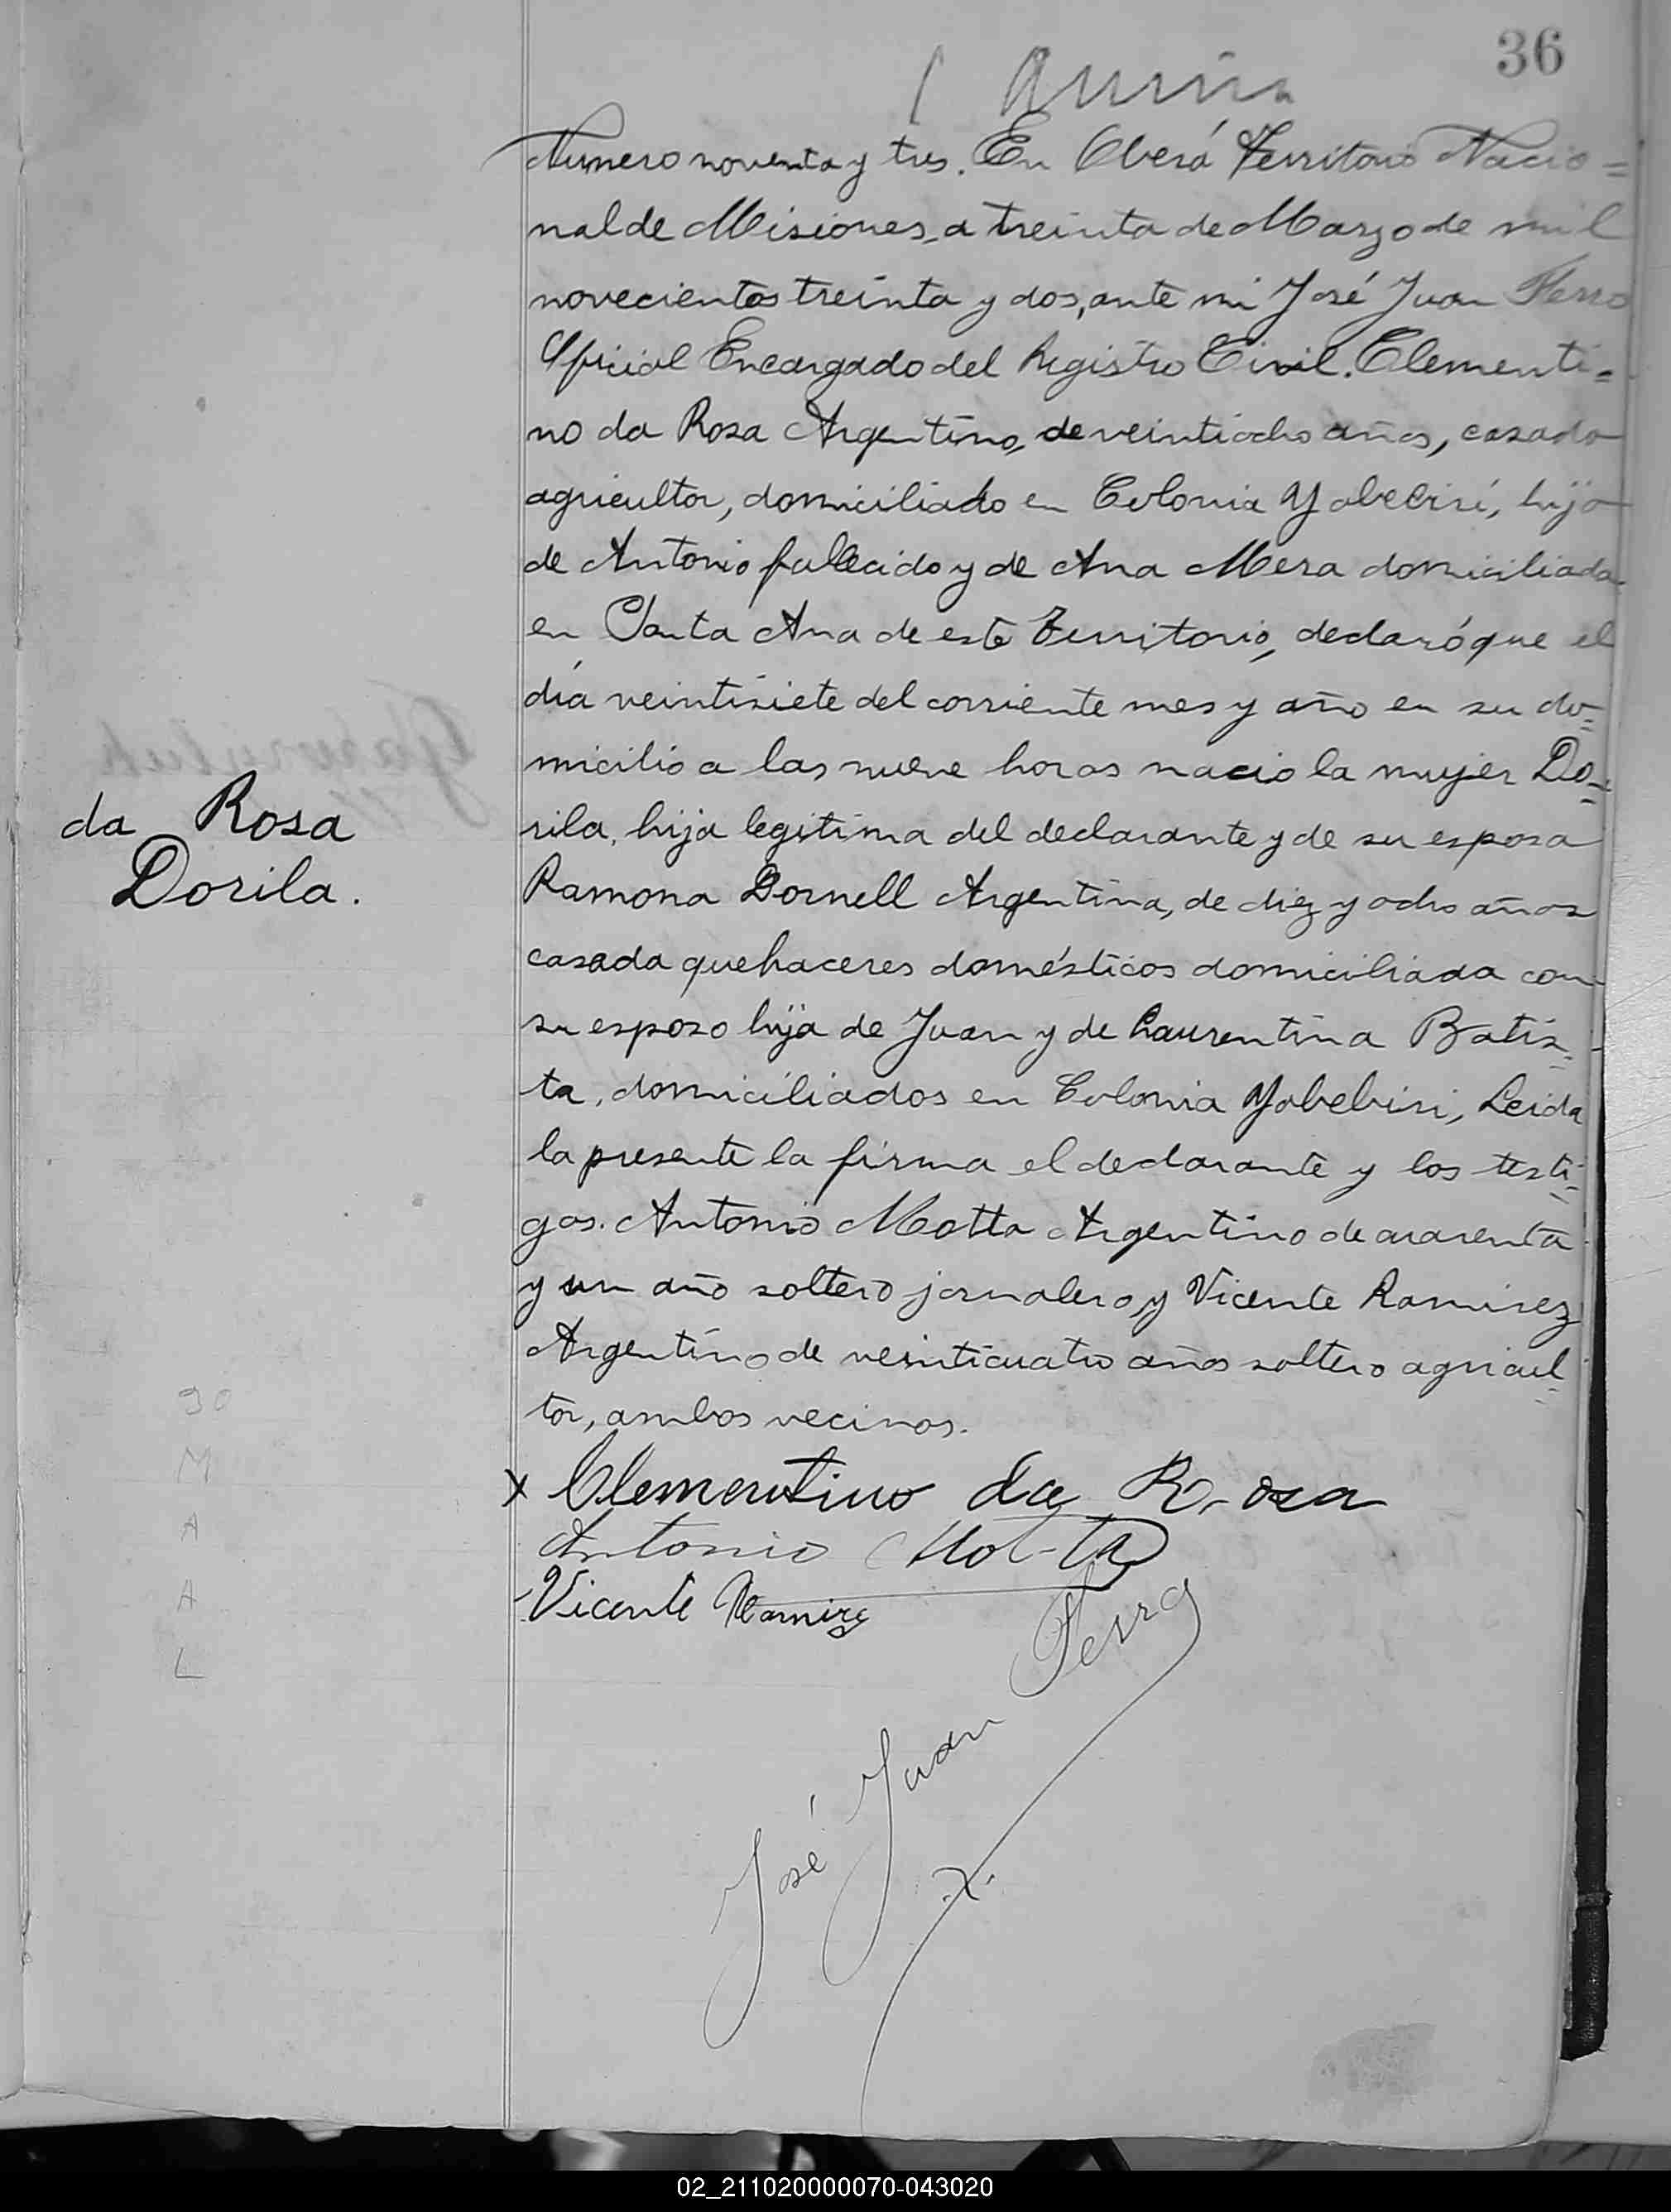 36
Numero noventa y tres. En Oberá Territorio Nacio=
nal de Misiones, a treinta de Marzo de mil
novecientos treinta y dos, ante mi José Juan Ferro
Oficial Encargado del Registro Civil. Clementi=
no da Rosa Argentino, de veintiocho años, casado
agricultor, domiciliado en Colonia Yabebirí, hijo
de Antonio fallecido y de Ana Mera domiciliada
en Santa Ana de este Territorio, declaró que el
día veintisiete del corriente mes y año en su do=
micilio a las nueve horas nacio la mujer Do=
rila, hija legitima del declarante y de su esposa
da Rosa
Dorila.
Ramona Dornell Argentina, de diez y ocho años
casada quehaceres domésticos domiciliada con
su esposo hija de Juan y de Laurentina Batis=
ta, domiciliados en Colonia Yabebiri, Leida
la presente la firma el declarante y los testi=
gos. Antonio Motta Argentino de cuarenta
y un año soltero jornalero, y Vicente Ramirez
Argentino de veinticuatro años soltero agricul=
tor, ambos vecinos.
x Clementino da Rosa
Antonio Mot-ta
Vicente Ramirez
José Juan Ferro
90
M
A
A
L
02_211020000070-043020